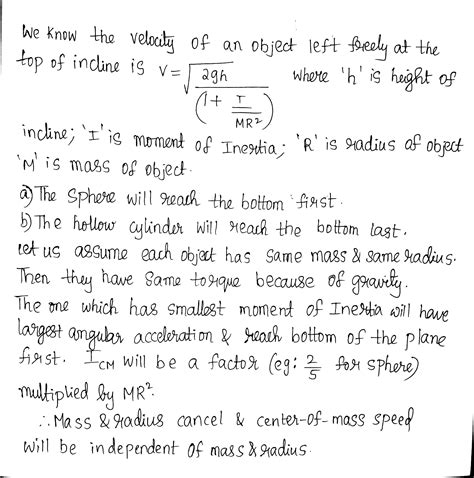 We know the velocity of an object left freely at the
top of incline is V = √(2gh / (1 + I/MR²)) where 'h' is height of
incline; 'I' is moment of Inertia; 'R' is radius of object
'M' is mass of object.
a) The Sphere will reach the bottom first.
b) The hollow cylinder will reach the bottom last.
let us assume each object has same mass & same radius.
Then they have same torque because of gravity.
The one which has smallest moment of Inertia will have
largest angular acceleration & reach bottom of the plane
first. I_CM will be a factor (eg: 2/5 for sphere)
multiplied by MR².
∴ Mass & radius cancel & center-of-mass speed
will be independent of mass & radius.